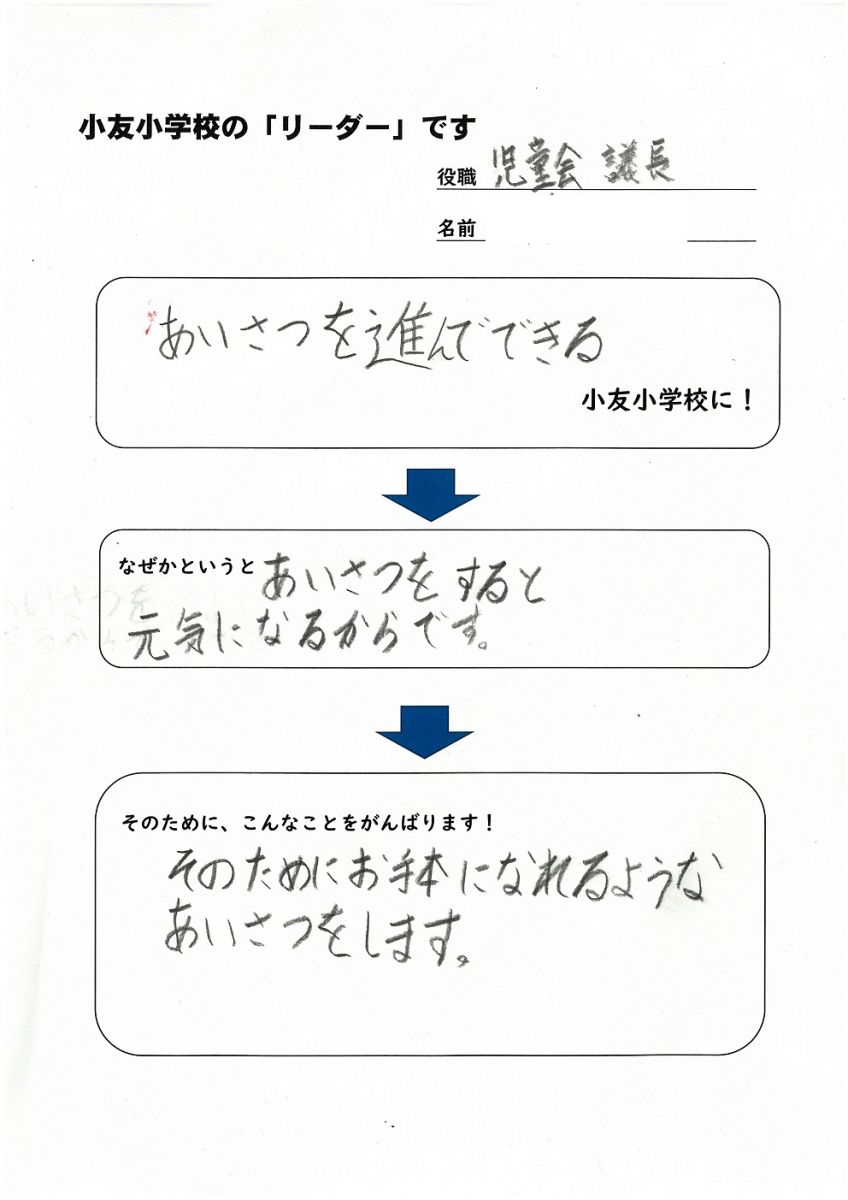 小友小学校の「リーダー」です
役職 児童会 議長
名前
あいさつを進んでできる
小友小学校に！
なぜかというと あいさつをすると
元気になるからです。
そのために、こんなことをがんばります！
そのためにお手本になれるような
あいさつをします。